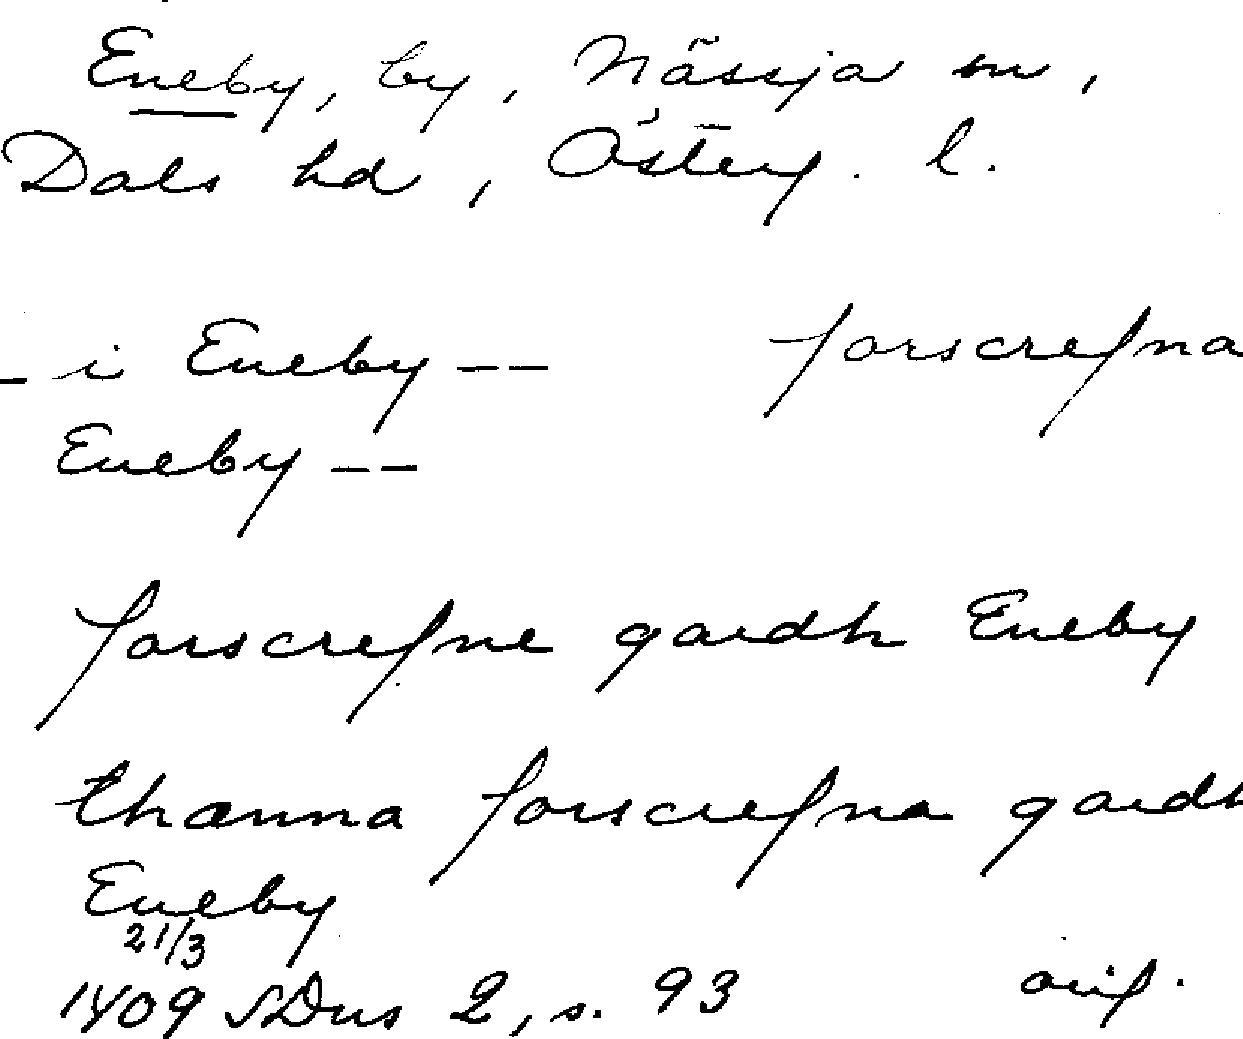 Eneby, by, Nässja sn,
Dals hd, Österg. l.
- i Eneby -- forscrefna
Eneby --
forscrefne gardh Eneby
thænna forscrefna gardh
Eneby
21/3
1409 SDns 2, s. 93 orig.